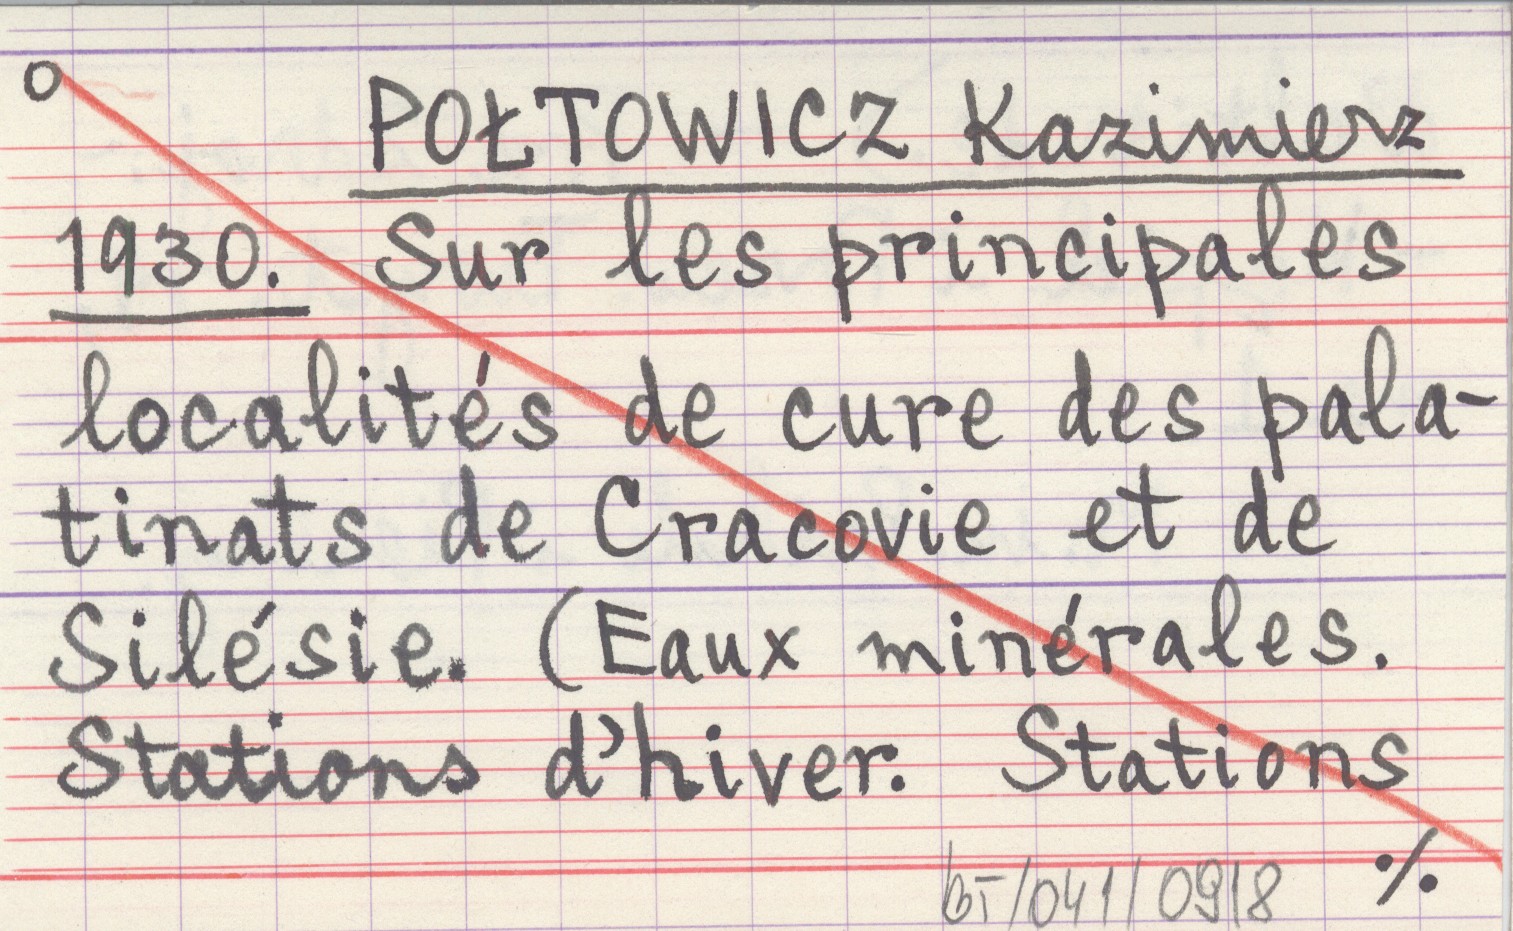 o
POŁTOWICZ Kazimierz
1930. Sur les principales
localités de cure des pala-
tinats de Cracovie et de
Silésie. (Eaux minérales.
Stations d'hiver. Stations
%
bT/041/0918